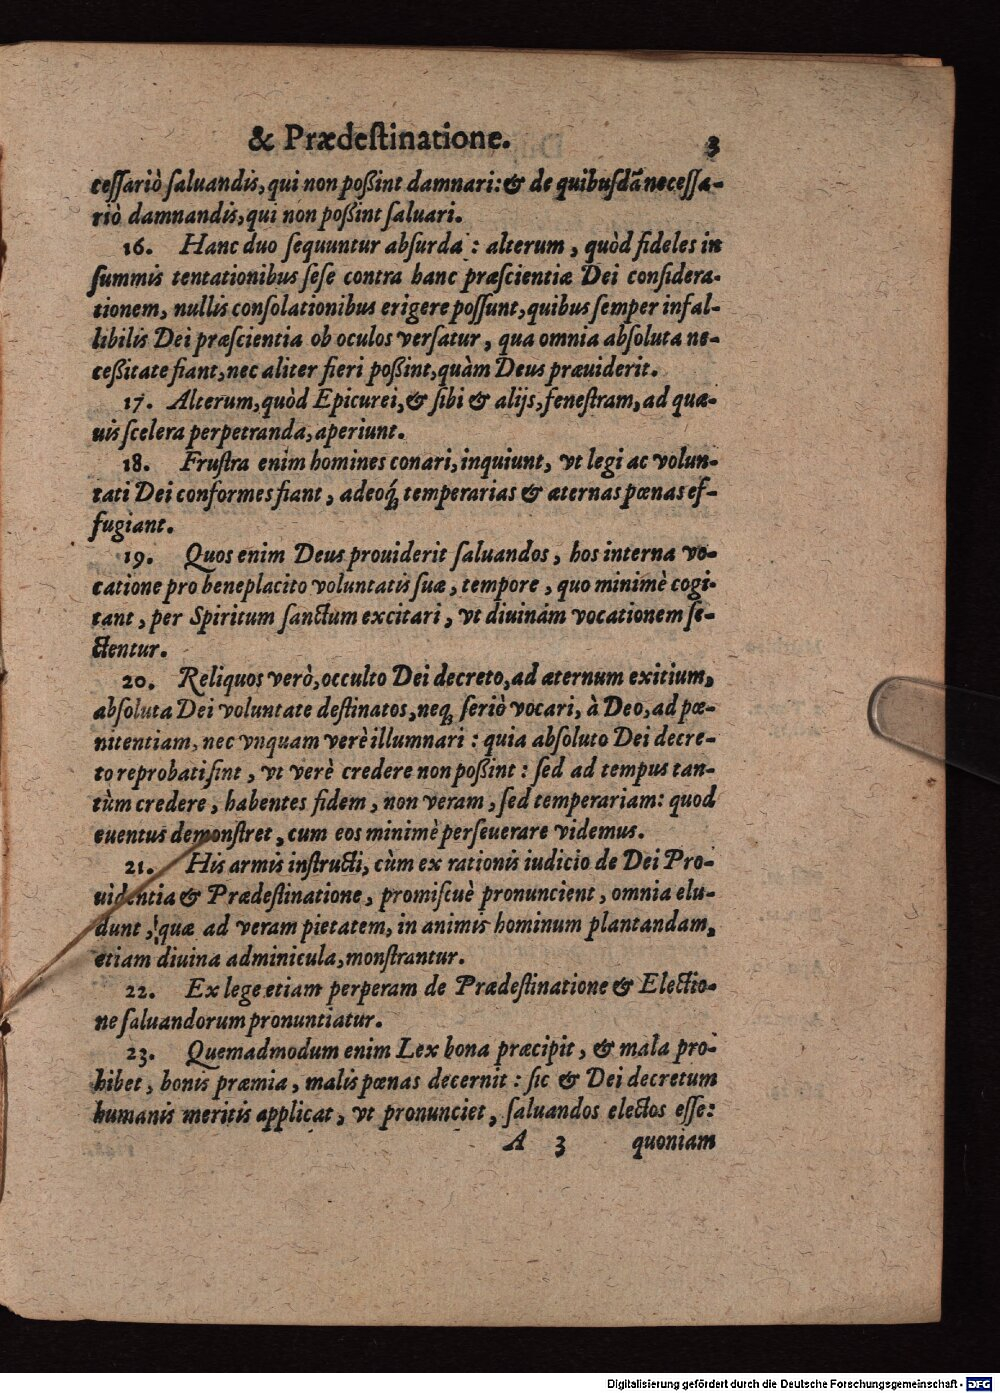 & Prædeſtinatione. 3
ceſſariò ſaluandis, qui non poßint damnari: & de quibuſdã neceſſa-
riò damnandis, qui non poßint ſaluari.
16. Hanc duo ſequuntur abſurda : alterum, quòd fideles in
ſummis tentationibus ſeſe contra hanc præſcientiæ Dei conſidera-
tionem, nullis conſolationibus erigere poſſunt, quibus ſemper infal-
libilis Dei præſcientia ob oculos verſatur, qua omnia abſoluta ne-
ceßitate fiant, nec aliter fieri poßint, quàm Deus præuiderit.
17. Alterum, quòd Epicurei, & ſibi & alijs, feneſtram, ad quæ-
uis ſcelera perpetranda, aperiunt.
18. Fruſtra enim homines conari, inquiunt, vt legi ac volun-
tati Dei conformes fiant, adeoq́; temperarias & æternas pœnas ef-
fugiant.
19. Quos enim Deus prouiderit ſaluandos, hos interna vo-
catione pro beneplacito voluntatis ſuæ, tempore, quo minimè cogi-
tant, per Spiritum ſanctum excitari, vt diuinam vocationem ſe-
ctentur.
20. Reliquos verò, occulto Dei decreto, ad æternum exitium,
abſoluta Dei voluntate deſtinatos, neq; ſeriò vocari, à Deo, ad pœ-
nitentiam, nec vnquam verè illumnari : quia abſoluto Dei decre-
to reprobati ſint, vt verè credere non poßint : ſed ad tempus tan-
tùm credere, habentes fidem, non veram, ſed temperariam: quod
euentus demonſtret, cum eos minimè perſeuerare videmus.
21. His armis inſtructi, cùm ex rationis iudicio de Dei Pro-
uidentia & Prædeſtinatione, promiſcuè pronuncient, omnia elu-
dunt, quæ ad veram pietatem, in animis hominum plantandam,
etiam diuina adminicula, monſtrantur.
22. Ex lege etiam perperam de Prædeſtinatione & Electio-
ne ſaluandorum pronuntiatur.
23. Quemadmodum enim Lex bona præcipit, & mala pro-
hibet, bonis præmia, malis pœnas decernit : ſic & Dei decretum
humanis meritis applicat, vt pronunciet, ſaluandos electos eſſe:
A 3 quoniam
Digitalisierung gefördert durch die Deutsche Forschungsgemeinschaft - DFG